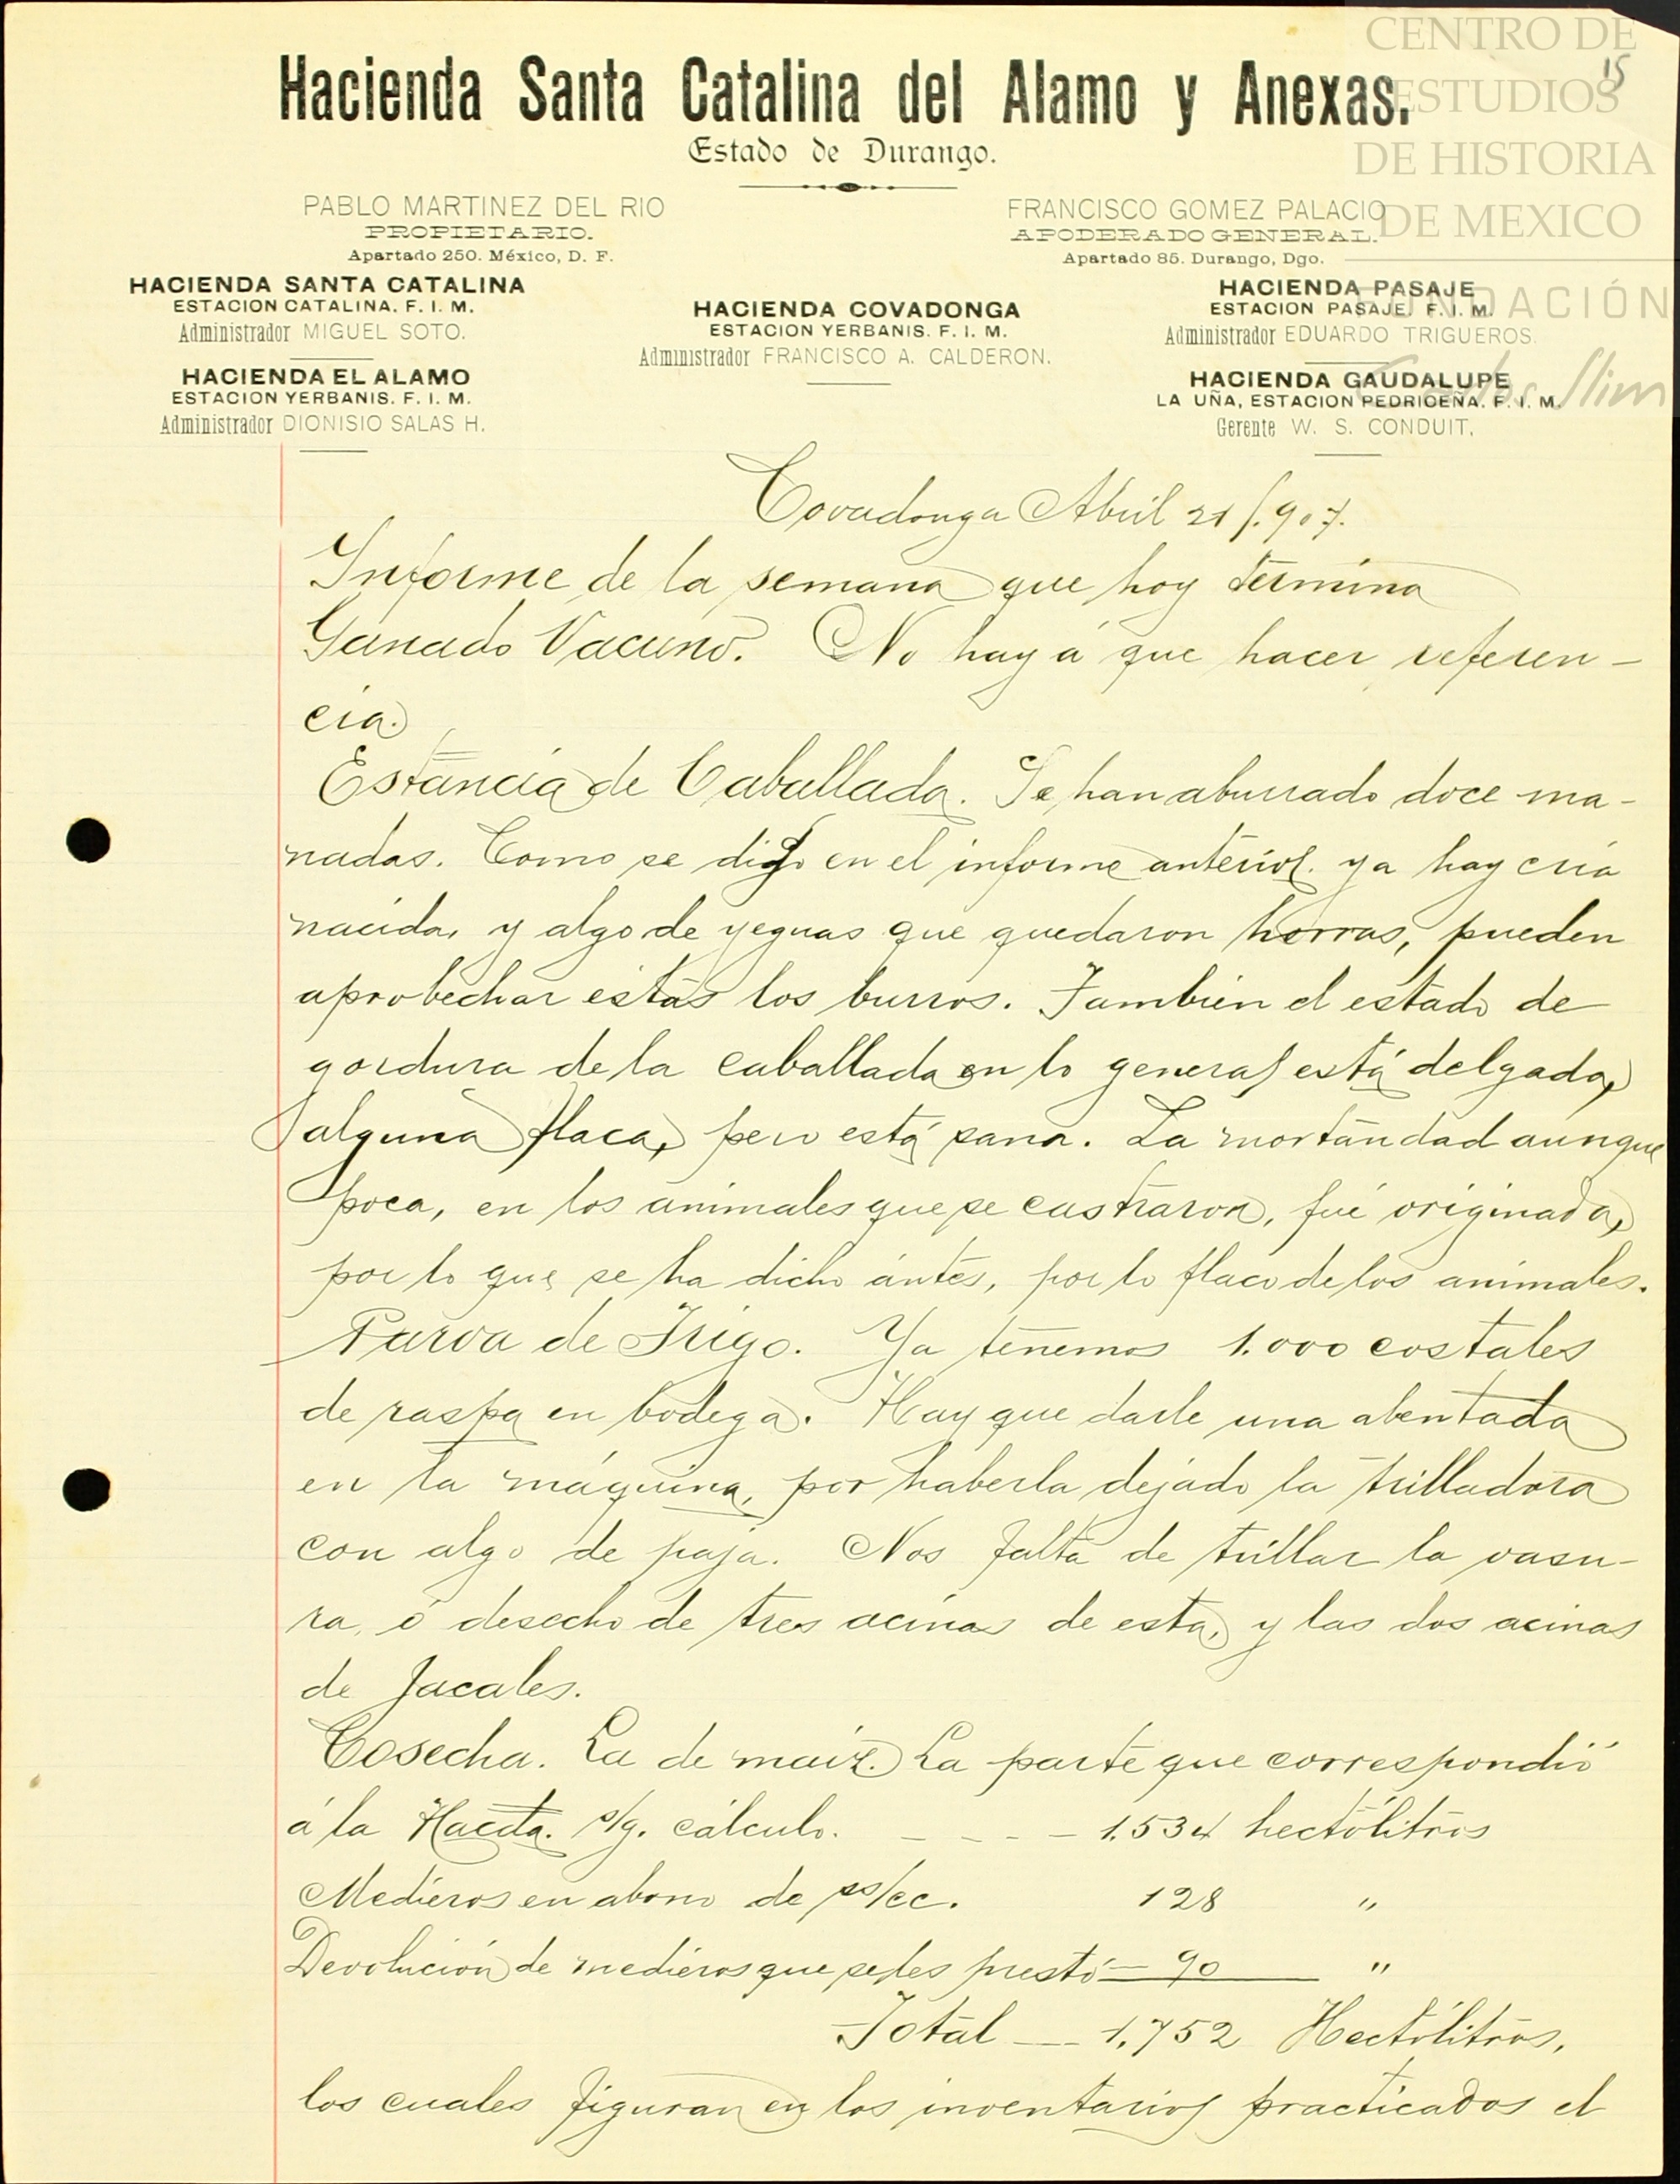 CENTRO DE
ESTUDIOS
DE HISTORIA
DE MEXICO
FUNDACIÓN
Carlos Slim
15
Hacienda Santa Catalina del Alamo y Anexas.
Estado de Durango.
PABLO MARTINEZ DEL RIO
PROPIETARIO.
Apartado 250. México, D. F.
FRANCISCO GOMEZ PALACIO
APODERADO GENERAL.
Apartado 85. Durango, Dgo.
HACIENDA SANTA CATALINA
ESTACION CATALINA. F. I. M.
Administrador MIGUEL SOTO.
HACIENDA EL ALAMO
ESTACION YERBANIS. F. I. M.
Administrador DIONISIO SALAS H.
HACIENDA COVADONGA
ESTACION YERBANIS. F. I. M.
Administrador FRANCISCO A. CALDERON.
HACIENDA PASAJE
ESTACION PASAJE. F. I. M.
Administrador EDUARDO TRIGUEROS.
HACIENDA GAUDALUPE
LA UÑA, ESTACION PEDRICEÑA. F. I. M.
Gerente W. S. CONDUIT.
Covadonga Abril 21/.907.
Informe de la semana que hoy termina
Ganado Vacuno. No hay á que hacer referen-
cia.
Estancia de Caballada. Se han aburrado doce ma-
nadas. Como se dijo en el informe anterior. ya hay cria
nacida, y algo de yeguas que quedaron horras, pueden
aprobechar estás los burros. Tambien el estado de
gordura de la caballada en lo general está delgada,
alguna flaca, pero está sana. La mortandad aunque
poca, en los animales que se castraron, fué originada,
por lo que se ha dicho ántes, por lo flaco de los animales.
Parva de Trigo. Ya tenemos 1.000 costales
de raspa en bodega. Hay que darle una abentada
en la máquina, por haberla dejado la trilladora
con algo de paja. Nos falta de trillar la vasu-
ra, ó desecho de tres acinas de esta, y las dos acinas
de Jacales.
Cosecha. La de maiz. La parte que correspondió
á la Hacda. s/g. cálculo. - - - - 1.534 hectólitros
Medieros en abono de ss/cc. 128 "
Devolución de medieros que se les prestó - 90 "
Total - 1.752 Hectólitros,
los cuales figuran en los inventarios practicados el